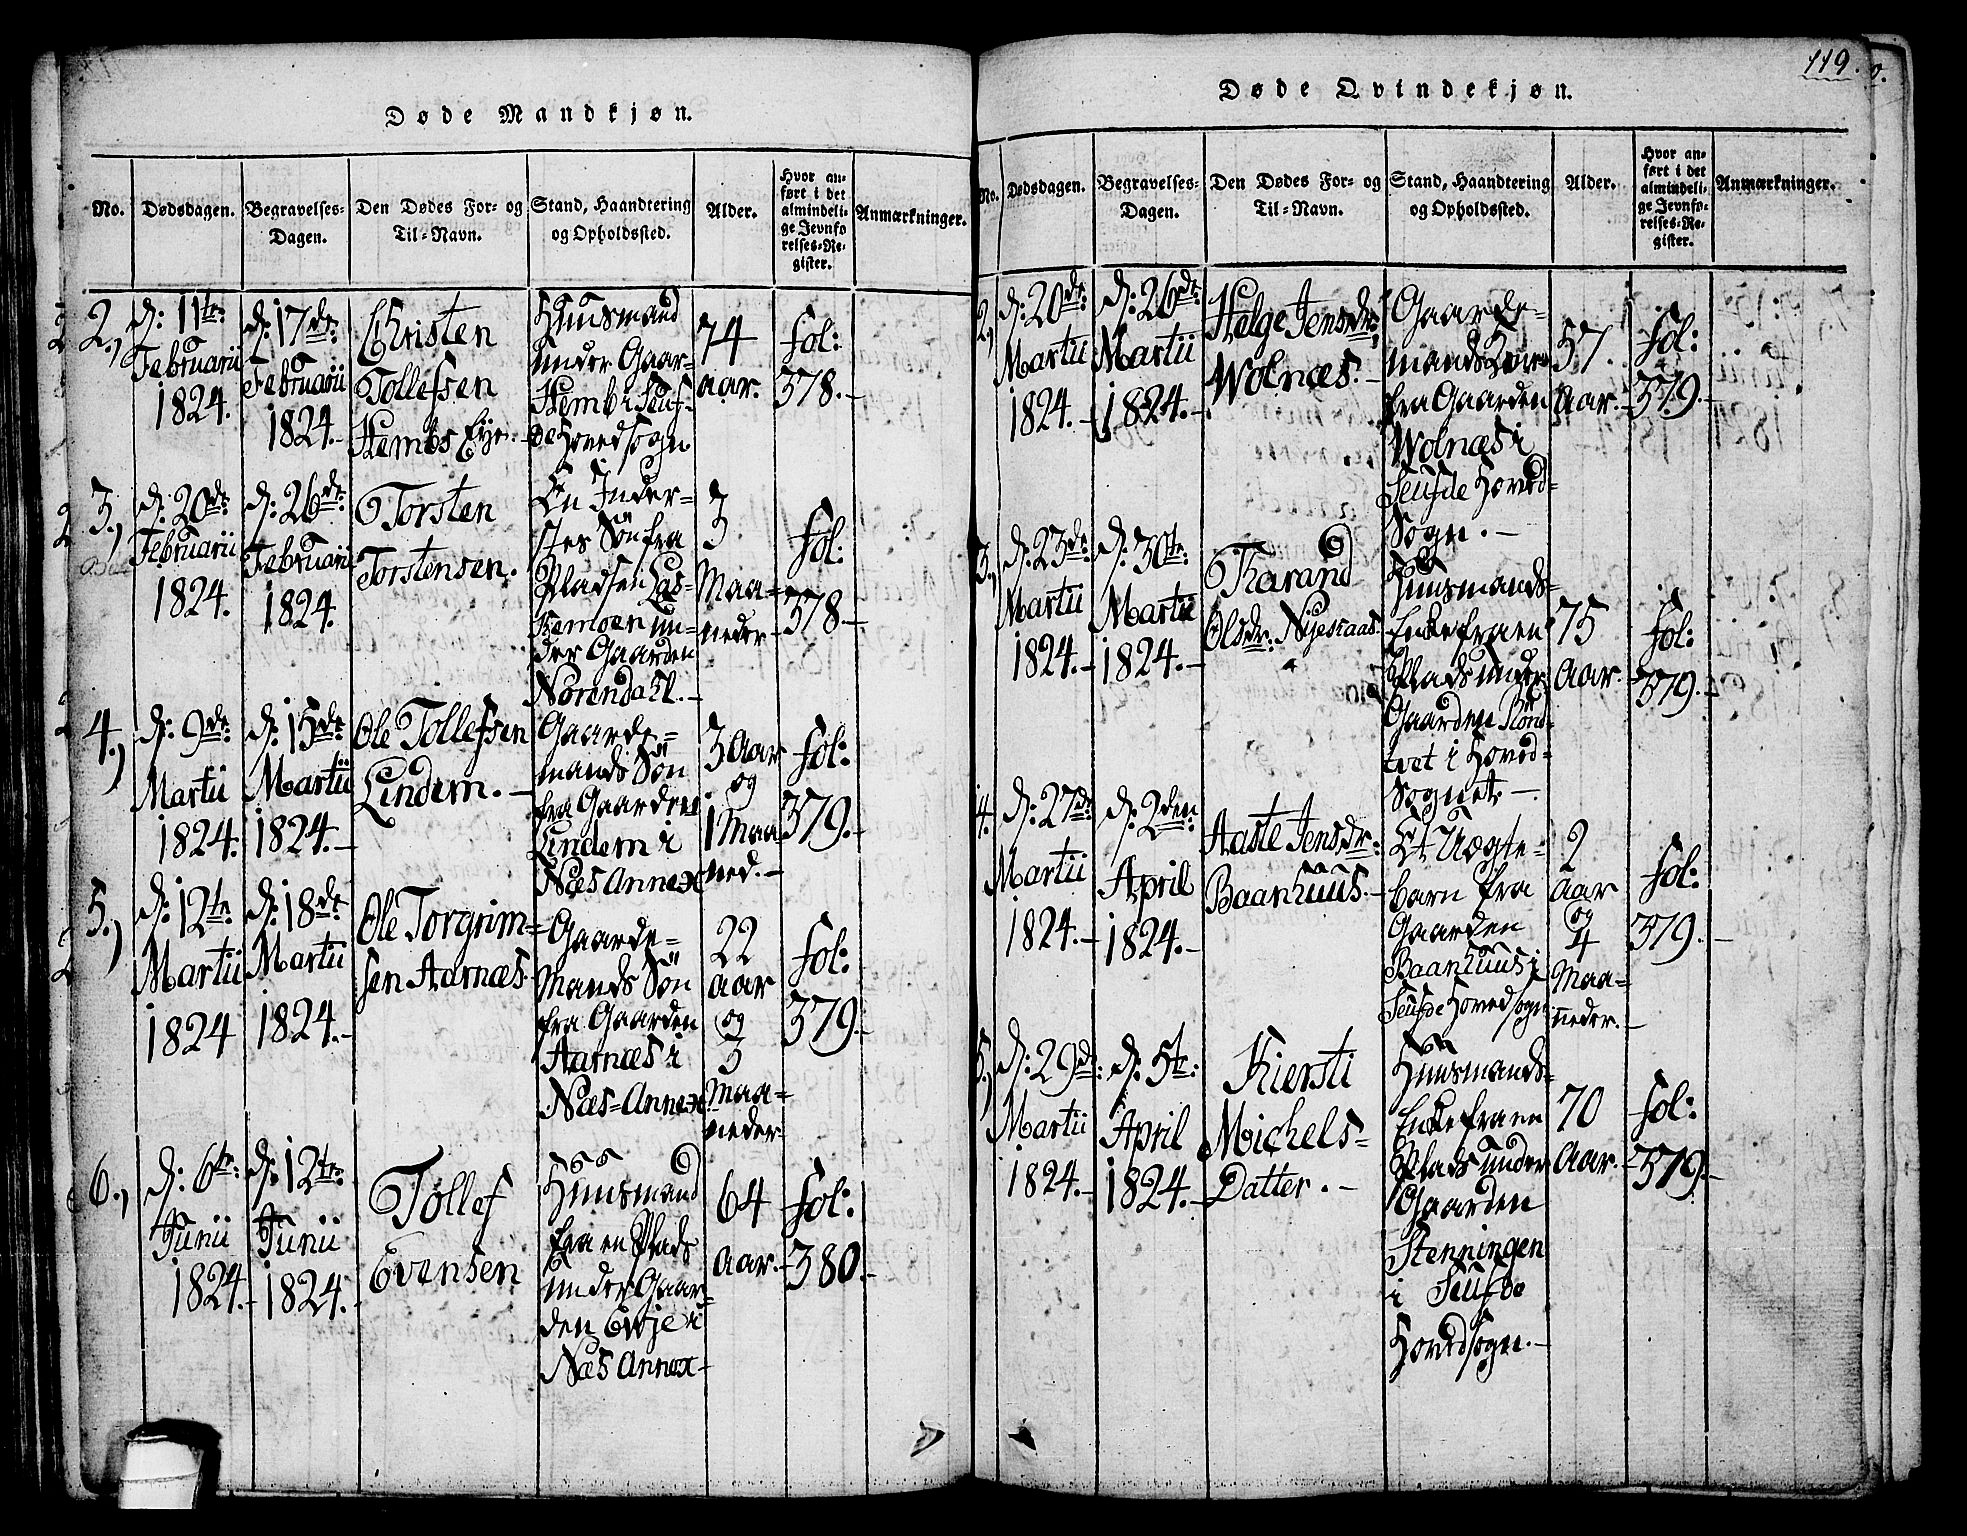 119.
Døde Mandkjøn.
No.
Dødsdagen.
Begravelses-
Dagen.
Den Dødes For- og
Til-Navn.
Stand, Haandtering
og Opholdssted.
Alder.
Hvor an-
ført i det
almindeli-
ge Jevnfø
relses-Re-
gister.
Anmærkninger.
2.,
d: 11te
Februarii
1824.
d: 17de
Februarii
1824.-
Christen
Tollefsen
Hembs Eye.-
Huusmand
under Gaar-
Hemb i Seuf-
de Hovedsogn
74
aar.
fol:
378.-
3.,
d: 20de
Februarii
1824.
d: 26de
Februarii
1824.
Torsten
Torstensen.
En Inder-
stes Søn fra
Pladsen
un-
der Gaarden
Nørendahl.-
3
Maa-
neder-
fol:
378.-
4.,
d: 9de
Martii
1824.
d: 15de
Martii
1824.-
Ole Tollefsen
Lindem.-
Gaarde-
mands Søn
fra Gaarden
Lindem i
Næs Annex
3 Aar
og
1 Maa
ned.-
fol:
379.-
5.,
d: 12te
Martii
1824
d: 18de
Martii
1824.-
Ole Torgrim-
sen Aarnæs.
Gaarde-
Mands Søn
fra Gaarden
Aarnæs i
Næs-Annex
22
aar
og
3
Maa-
neder-
fol:
379.-
6.,
d: 6te
Junii
1824.-
d: 12te
Junii
1824.-
Tollef
Evensen
Huusmand
fra en Plads
under Gaar-
den Evje i
Næs Annex-
64
aar.-
fol:
380.-
Døde Qvindekjøn.
No.
Dødsdagen.
Begravelses-
Dagen.
Den Dødes For- og
Til-Navn.
Stand, Haandtering
og Opholdssted.
Alder.
Hvor an-
ført i det
almindeli-
ge Jevnfø-
relses-Re-
gister.
Anmærkninger.
2,
d: 20de
Martii
1824.-
d: 26de
Martii
1824.-
Helge Jensdr:
Wolnæs.-
Gaarde-
mands
fra Gaarden
Wolnæs i
Seufde Hoved-
Sogn.-
57.
Aar.-
fol:
379.-
3.,
d: 23de
Martii
1824.-
d: 30te
Martii
1824.-
Tharand
Olsdr: Nyestaas.
Huusmands-
Enke fra en
Plads under
Gaarden Rønd-
tvet i Hoved-
Sognet.-
75
Aar.-
fol:
379.-
4.
d: 27de
Martii
1824.-
d: 2den
April
1824.-
Aaste Jensdr:
Baanhuus.-
Et Uægte-
barn fra
Gaarden
Baanhuus i
Seufde Hovedsogn
2
aar
og
4
Maa-
neder.-
fol:
379.-
5,
d: 29de
Martii
1824.-
d: 5te
April
1824.-
Kiersti
Michels-
Datter.-
Huusmands-
Enke fra en
Plads under
Gaarden
Stenningen
i Seufde
Hovedsogn.-
70
Aar.-
fol:
379.-